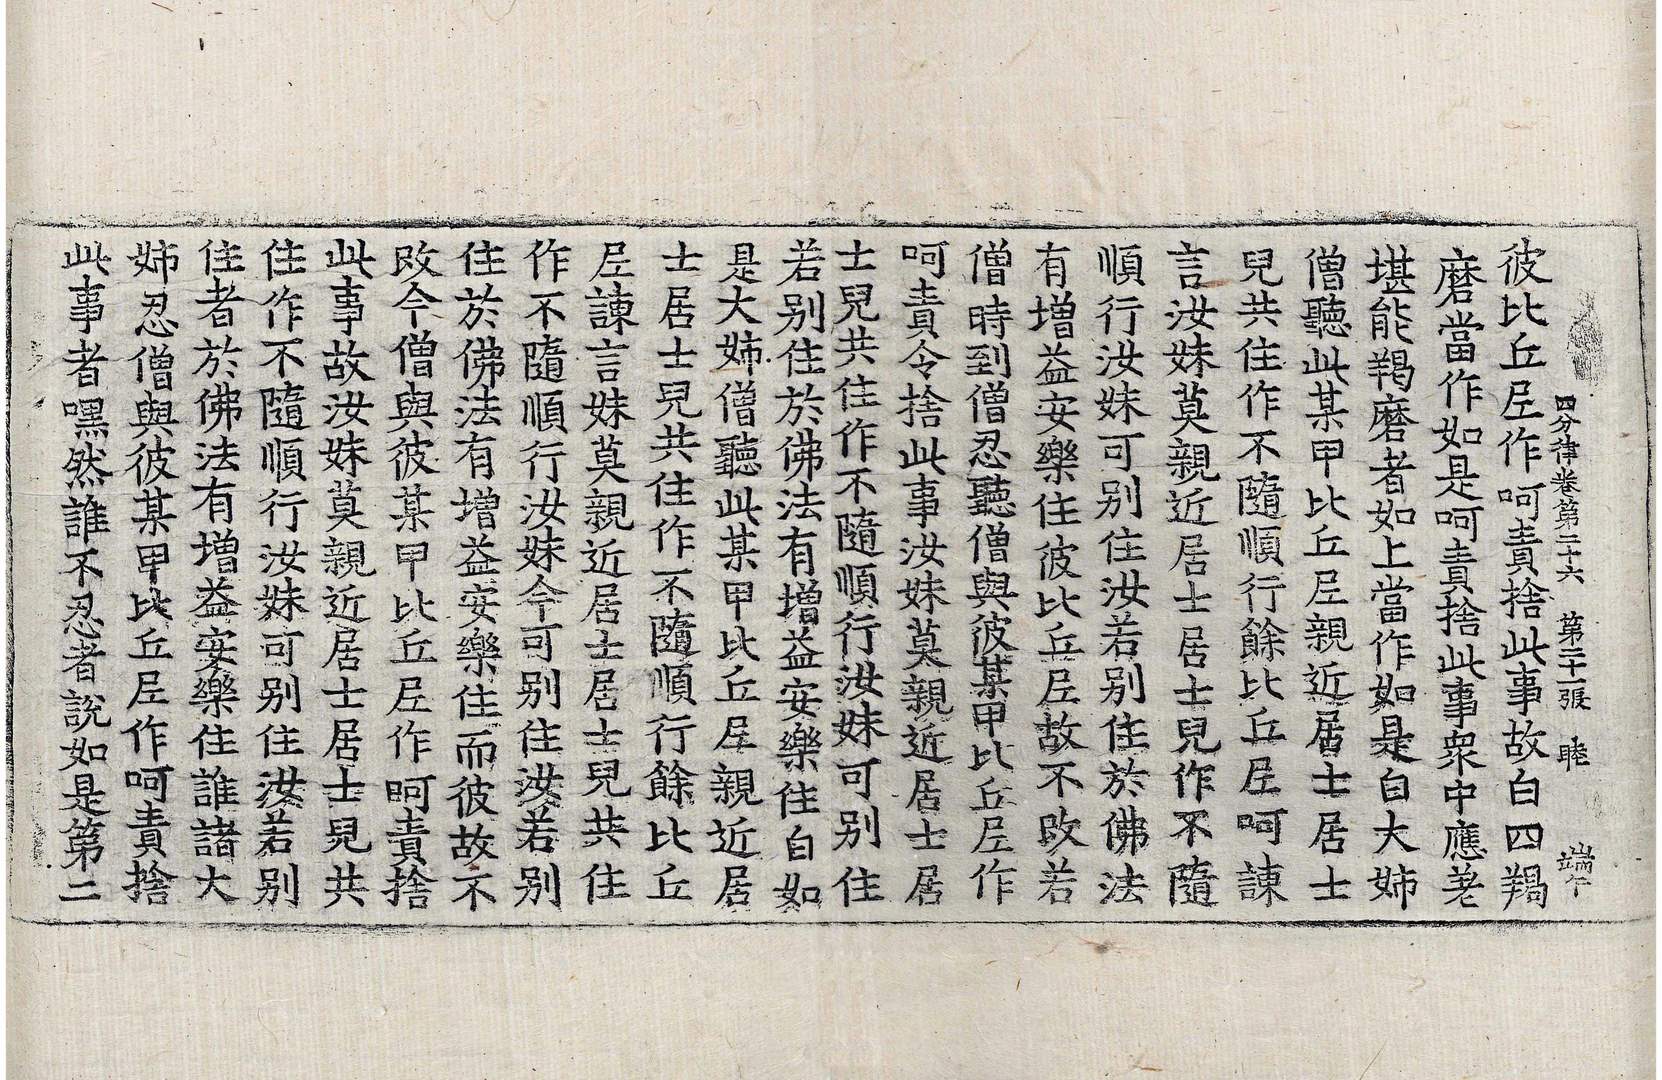 四分律卷第二十六　第二十一張　睦　端午
彼比丘尼作呵責捨此事故白四羯
磨當作如是呵責捨此事衆中應差
堪能羯磨者如上當作如是白大姊
僧聽此某甲比丘尼親近居士居士
兒共住作不隨順行餘比丘尼呵諫
言汝妹莫親近居士居士兒作不隨
順行汝妹可别住汝若别住於佛法
有增益安樂住彼比丘尼故不改若
僧時到僧忍聽僧與彼某甲比丘尼作
呵責令捨此事汝妹莫親近居士居
士兒共住作不隨順行汝妹可别住
若别住於佛法有增益安樂住白如
是大姊僧聽此某甲比丘尼親近居
士居士兒共住作不隨順行餘比丘
尼諫言妹莫親近居士居士兒共住
作不隨順行汝妹今可别住汝若别
住於佛法有增益安樂住而彼故不
改今僧與彼某甲比丘尼作呵責捨
此事故汝妹莫親近居士居士兒共
住作不隨順行汝妹可别住汝若别
住者於佛法有增益安樂住誰諸大
姊忍僧與彼某甲比丘尼作呵責捨
此事者嘿然誰不忍者說如是第二